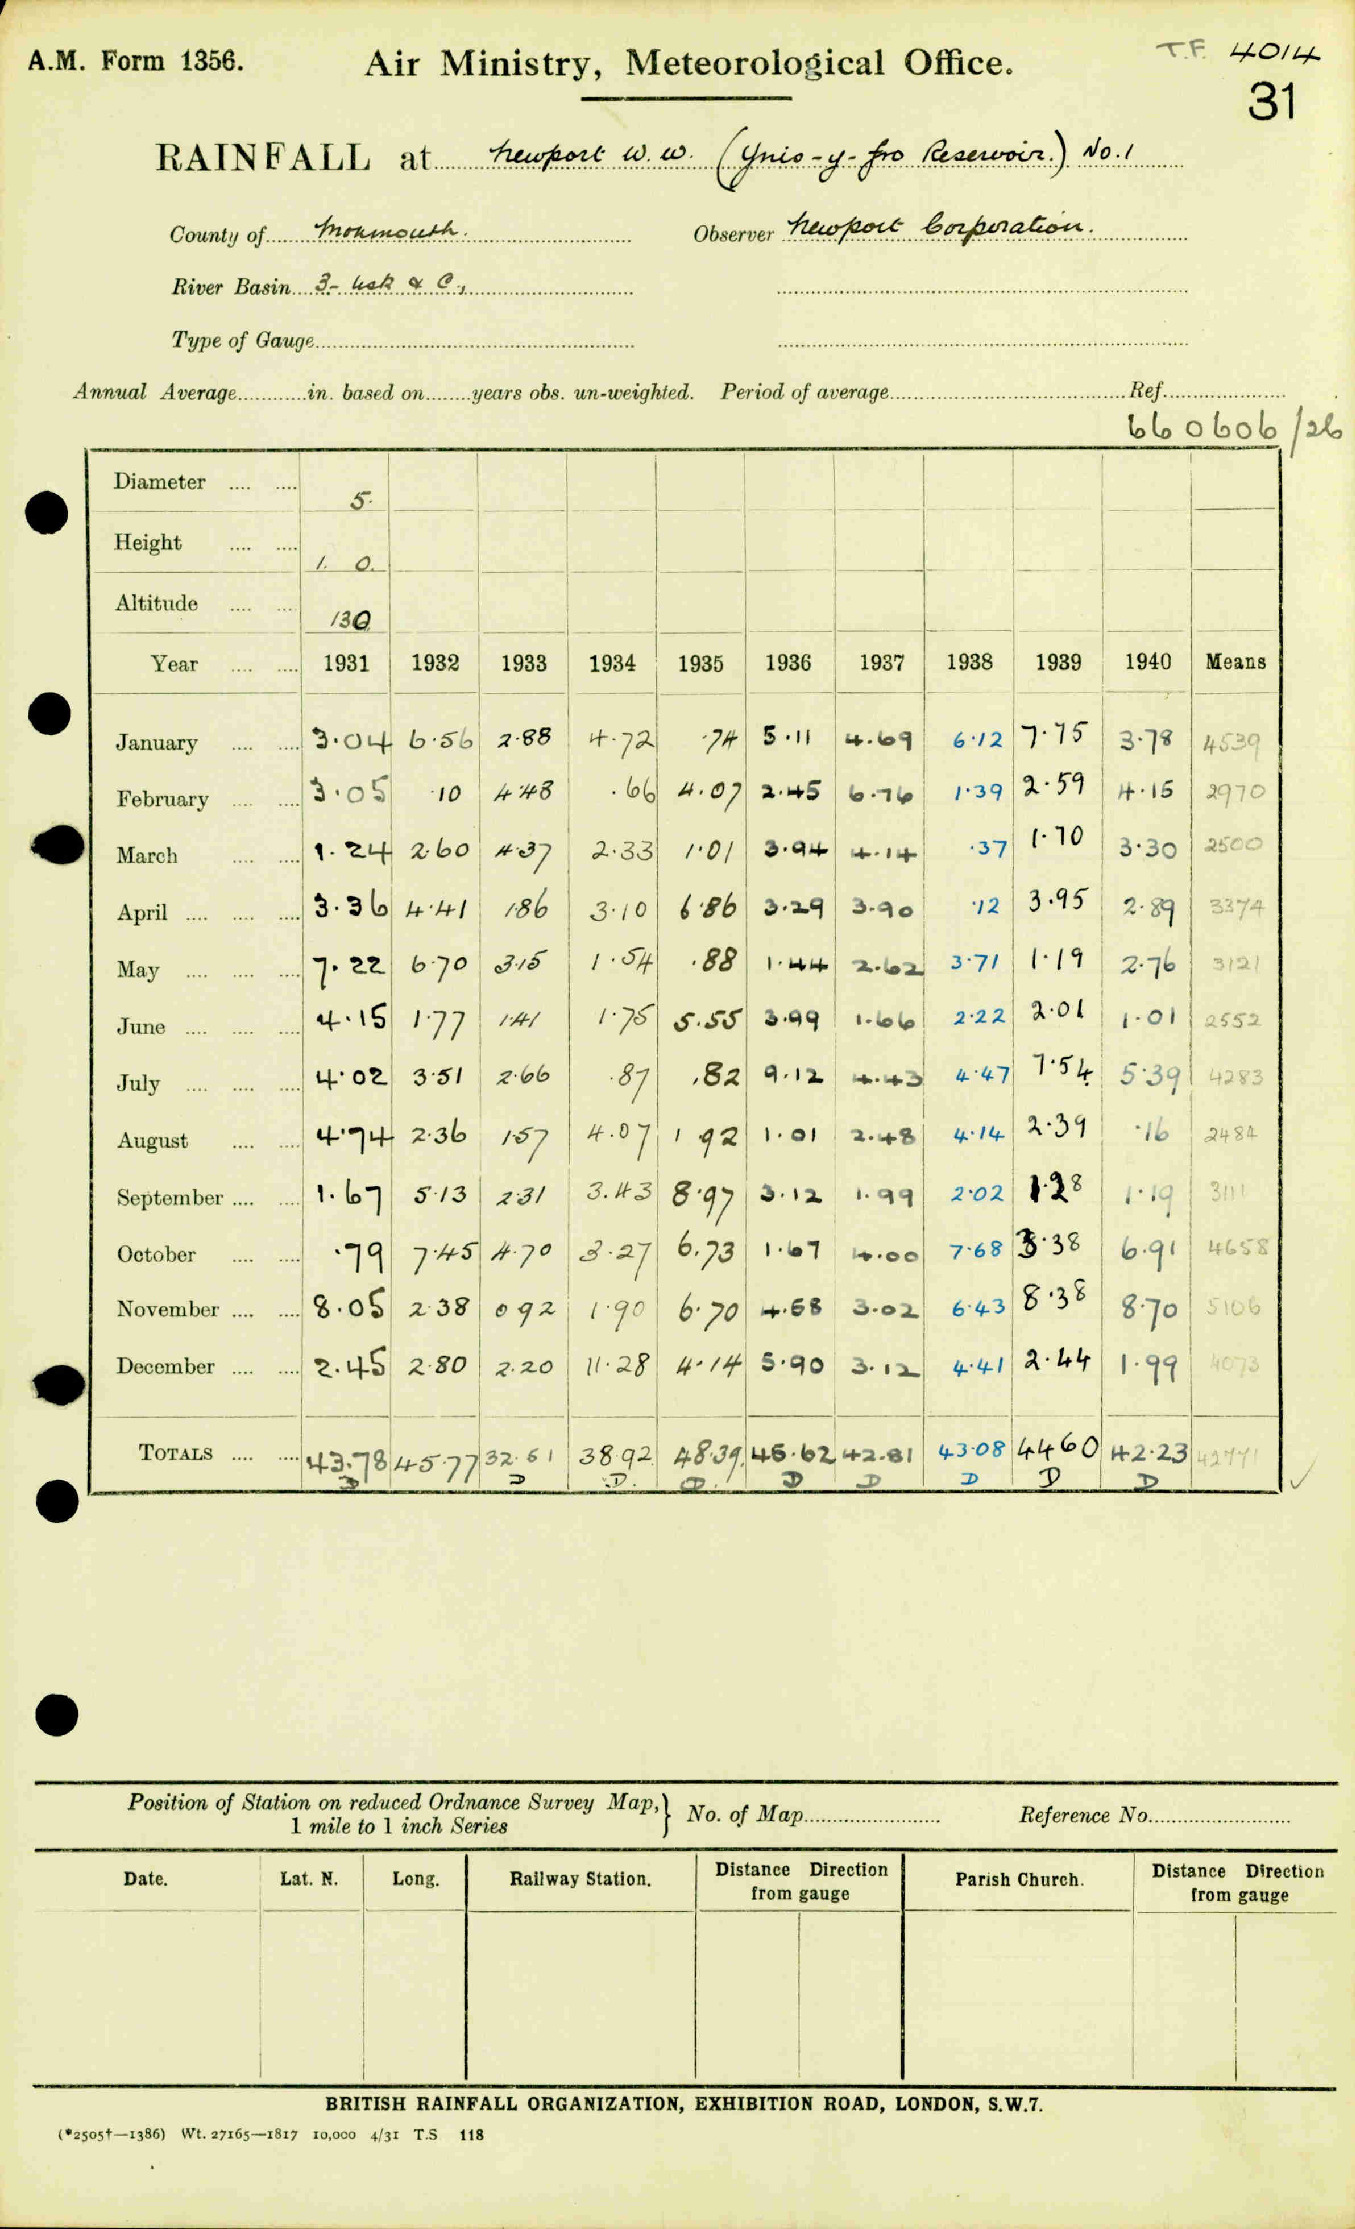 A.M. Form 1356.
Air Ministry, Meteorological Office.
T.F. 4014
31
RAINFALL at Newport W.W. (Ynis-y-fro Reservoir.) No.1
County of Monmouth. Observer Newport Corporation.
River Basin 3- Usk & C.,
Type of Gauge
Annual Average in. based on years obs. un-weighted. Period of average Ref.
660606/26
Diameter 5.
Height 1. 0.
Altitude 130
Year 1931 1932 1933 1934 1935 1936 1937 1938 1939 1940 Means
January 3.04 6.56 2.88 4.72 .74 5.11 4.69 6.12 7.75 3.78 4539
February 3.05 .10 4.48 .66 4.07 2.45 6.76 1.39 2.59 4.15 2970
March 1.24 2.60 4.37 2.33 1.01 3.94 4.14 .37 1.70 3.30 2500
April 3.36 4.41 1.86 3.10 6.86 3.29 3.90 .12 3.95 2.89 3374
May 7.22 6.70 3.15 1.54 .88 1.44 2.62 3.71 1.19 2.76 3121
June 4.15 1.77 1.41 1.75 5.55 3.99 1.66 2.22 2.01 1.01 2552
July 4.02 3.51 2.66 .87 .82 9.12 4.43 4.47 7.54 5.39 4283
August 4.74 2.36 1.57 4.07 1 92 1.01 2.48 4.14 2.39 .16 2484
September 1.67 5.13 2.31 3.43 8.97 3.12 1.99 2.02 1.28 1.19 3111
October .79 7.45 4.70 3.27 6.73 1.67 4.00 7.68 3.38 6.91 4658
November 8.05 2 38 0 92 1.90 6.70 4.58 3.02 6.43 8.38 8.70 5106
December 2.45 2.80 2.20 11.28 4.14 5.90 3.12 4.41 2.44 1.99 4073
TOTALS 43.78 45.77 32.51 38.92 48.39 45.62 42.81 43.08 44 60 42.23 42771
D D D. D. D D D D D
Position of Station on reduced Ordnance Survey Map, 1 mile to 1 inch Series } No. of Map Reference No.
Date. Lat. N. Long. Railway Station. Distance Direction from gauge Parish Church. Distance Direction from gauge
BRITISH RAINFALL ORGANIZATION, EXHIBITION ROAD, LONDON, S.W.7.
(*2505†—1386) Wt. 27165—1817 10,000 4/31 T.S 118